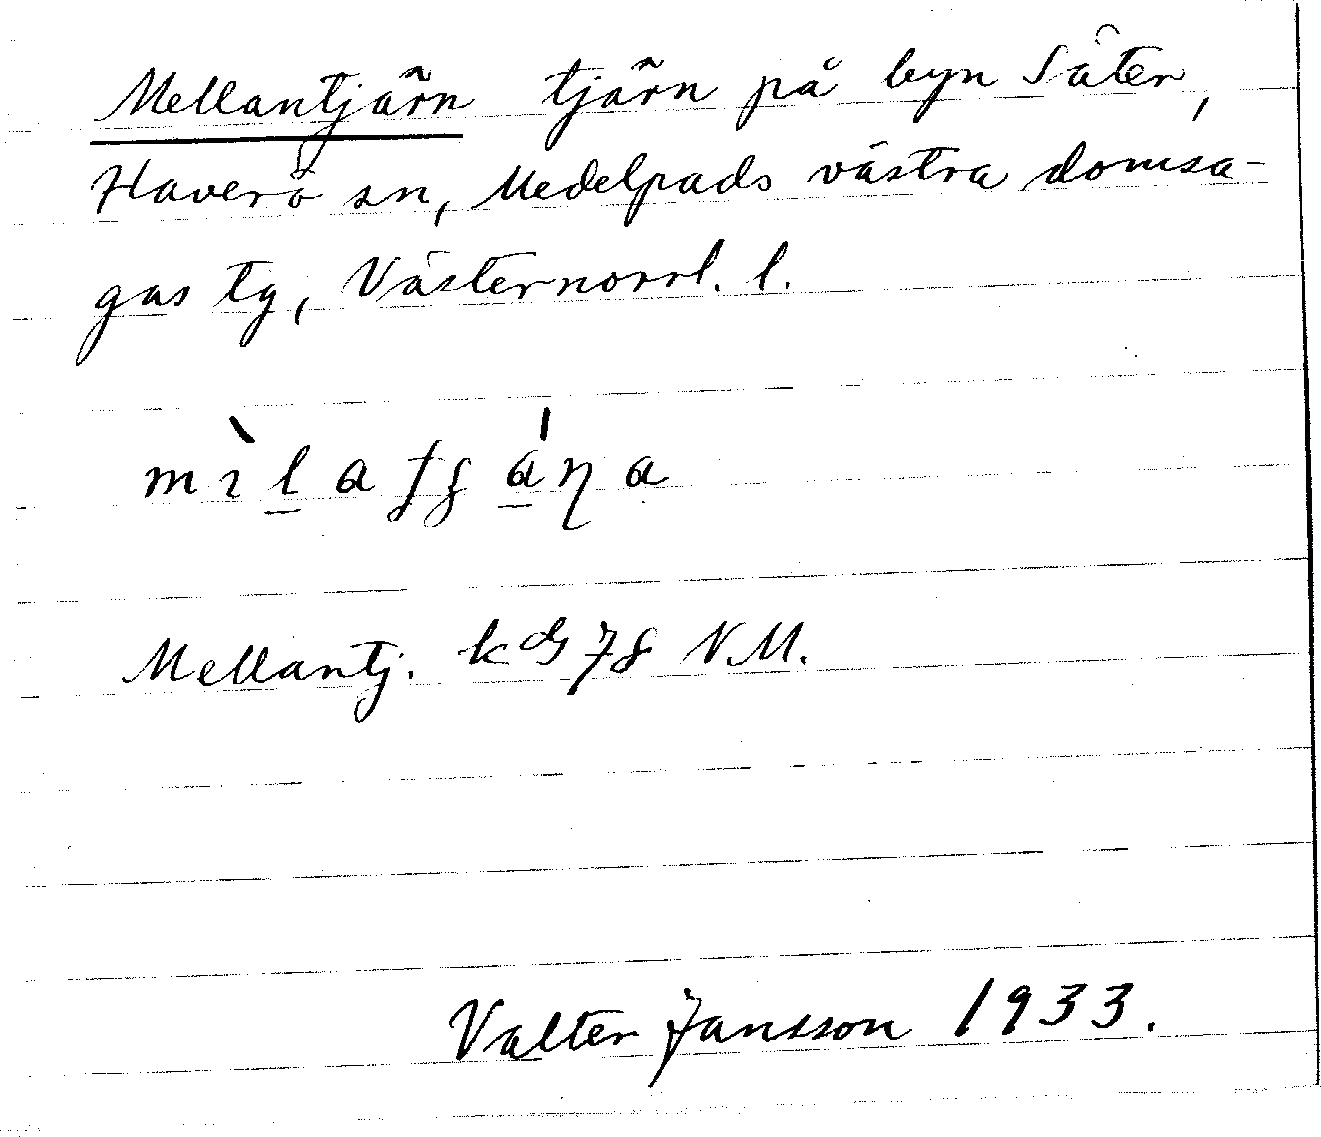 Mellantjärn tjärn på byn Säter,
Haverö sn, Medelpads västra domsa-
gas tg, Västernorrl. l.
Mellantj. kbl 78 N.M.
Valter Jansson 1933.